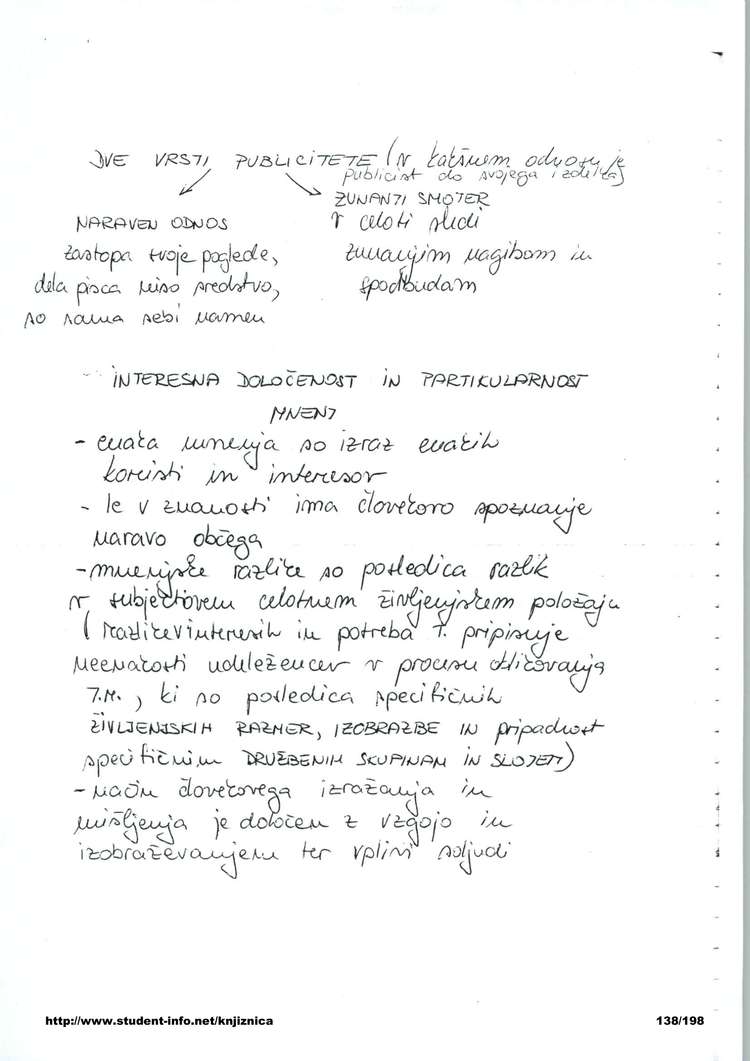 DVE VRSTI PUBLICITETE (v kakšnem odnosu je
publicist do svojega izdelka)
NARAVEN ODNOS
zastopa svoje poglede,
dela pisca niso sredstvo,
so sama sebi namen
ZUNANJI SMOTER
v celoti sledi
zunanjim nagibom in
spodbudam
INTERESNA DOLOČENOST IN PARTIKULARNOST
MNENJ
- enaka mnenja so izraz enakih
koristi in interesov
- le v znanosti ima človekovo spoznanje
naravo občega
- mnenjske razlike so posledica razlik
v subjektovem celotnem življenjskem položaju
(razlike v interesih in potreba T. pripisuje
neenakosti udeležencev v procesu oblikovanja
J.M., ki so posledica specifičnih
ŽIVLJENJSKIH RAZMER, IZOBRAZBE IN pripadnost
specifičnim DRUŽBENIH SKUPINAM IN SLOJEM)
- način človekovega izražanja in
mišljenja je določen z vzgojo in
izobraževanjem ter vplivi soljudi
http://www.student-info.net/knjiznica
138/198